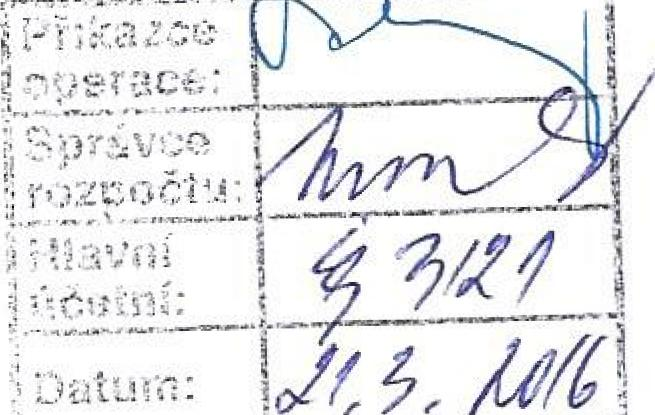 Příkazce
operace:
Správce
rozpočtu:
Hlavní
účetní:
§ 3121
Datum:
21.3.2016